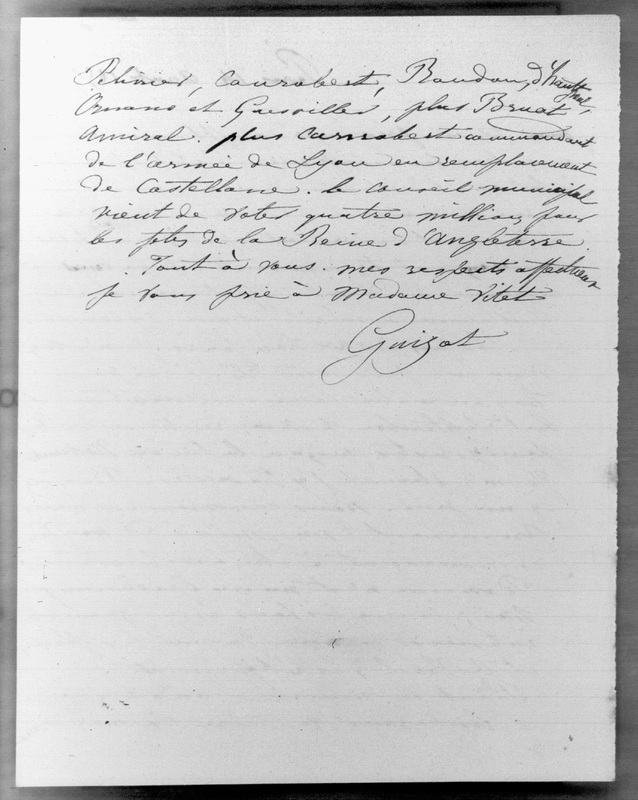 Pélissier, Canrobert, Randon, d'hautpoul,
Ornano et Grésviller, plus Bruat,
amiral. plus canrobert commandant
de l'armée de Lyon en remplacement
de Castellane. le conseil municipal
vient de voter quatre millions pour
les fêtes de la Reine d'angleterre.
Tout à vous. mes respects affectueux
je vous prie à Madame Vitet
Guizot